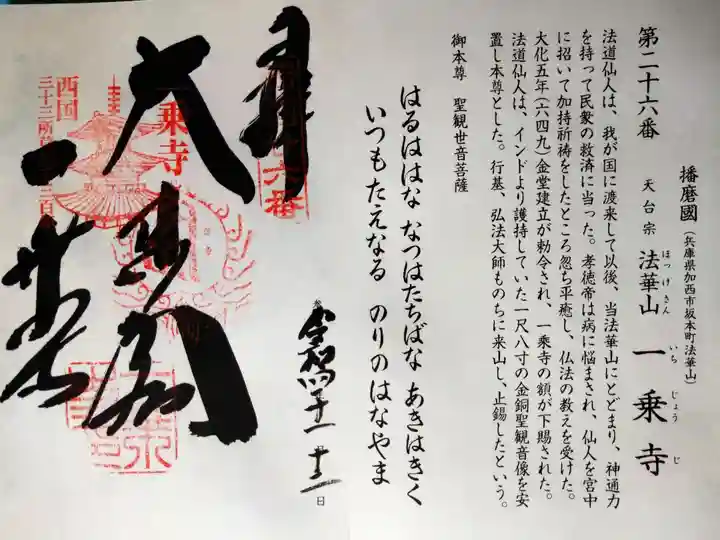 播磨國（兵庫県加西市坂本町法華山）
第二十六番　天台宗　法華山　一乗寺
ほっけさん　いちじょうじ
法道仙人は、我が国に渡来して以後、当法華山にとどまり、神通力
を持って民衆の救済に当った。孝徳帝は病に悩まされ、仙人を宮中
に招いて加持祈祷をしたところ忽ち平癒し、仏法の教えを受けた。
大化五年（六四九）金堂建立が勅令され、一乗寺の額が下賜された。
法道仙人は、インドより護持していた一尺八寸の金銅聖観音像を安
置し本尊とした。行基、弘法大師ものちに来山し、止錫したという。
御本尊　聖観世音菩薩
はるははな　なつはたちばな　あきはきく
いつもたえなる　のりのはなやま
令和四年十一月十三日
六番
大悲閣
一乗寺
西国
三十三所